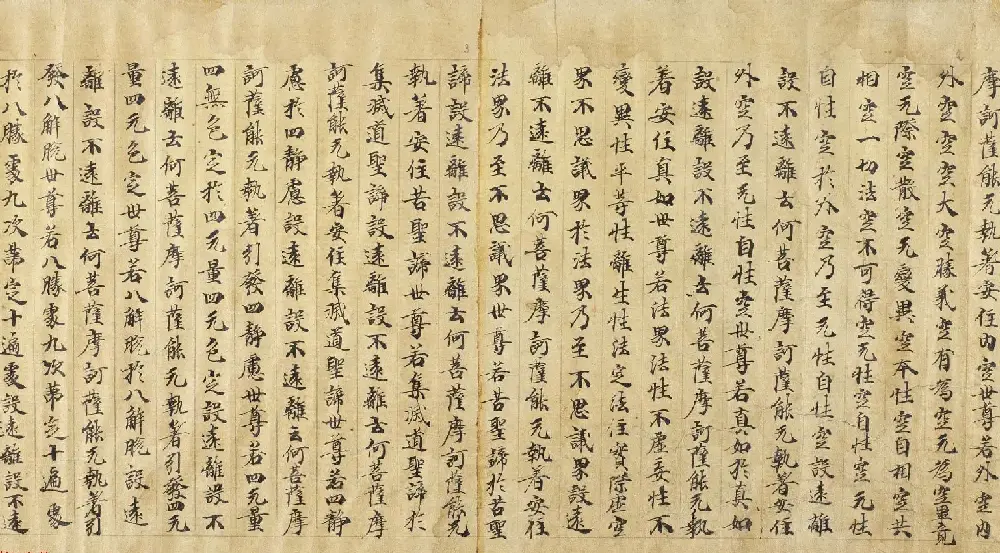 摩訶薩能无執著安住內空世尊若外空內
外空空空大空勝義空有為空无為空畢竟
空无際空散空无變異空本性空自相空共
相空一切法空不可得空无性空自性空无性
自性空於外空乃至无性自性空設遠離
設不遠離云何菩薩摩訶薩能无執著安住
外空乃至无性自性空世尊若真如於真如
設遠離設不遠離云何菩薩摩訶薩能无執
著安住真如世尊若法界法性不虛妄性不
變異性平等性離生性法定法住實際虛空
界不思議界於法界乃至不思議界設遠
離不遠離云何菩薩摩訶薩能无執著安住
法界乃至不思議界世尊若苦聖諦於苦聖
諦設遠離設不遠離云何菩薩摩訶薩能无
執著安住苦聖諦世尊若集滅道聖諦於
集滅道聖諦設遠離設不遠離云何菩薩摩
訶薩能无執著安住集滅道聖諦世尊若四靜
慮於四靜慮設遠離設不遠離云何菩薩摩
訶薩能无執著引發四靜慮世尊若四无量
四無色定於四无量四无色定設遠離設不
遠離云何菩薩摩訶薩能无執著引發四无
量四无色定世尊若八解脫於八解脫設遠
離設不遠離云何菩薩摩訶薩能无執著引
發八解脫世尊若八勝處九次第定十遍處
於八勝處九次第定十遍處設遠離設不遠